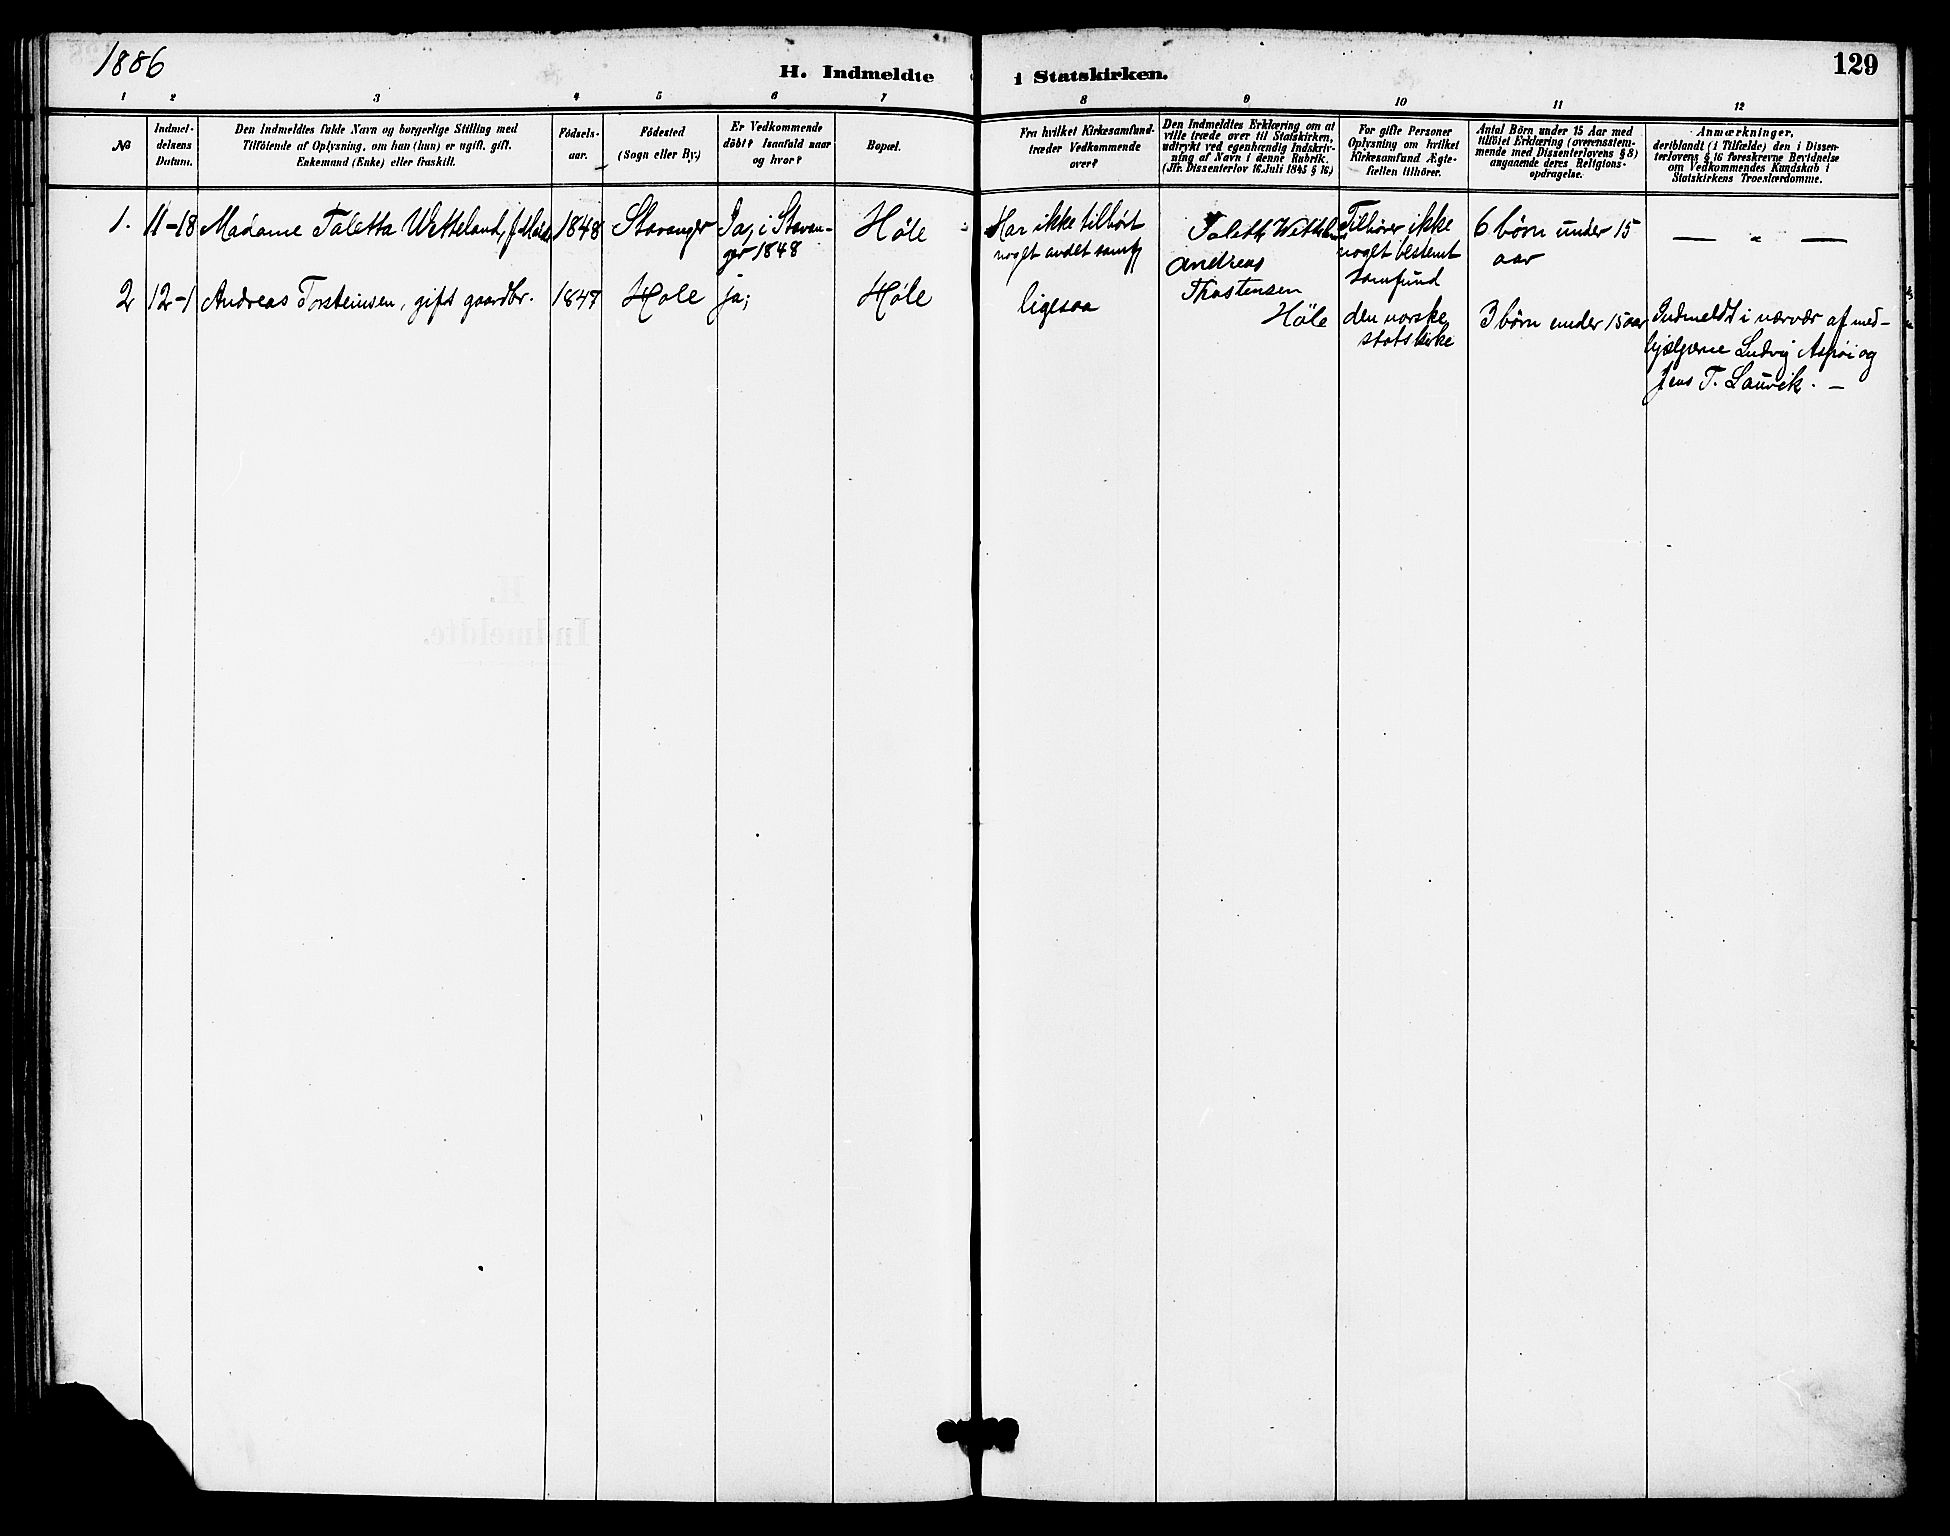 1886
H. Indmeldte i Statskirken.
129
1 2 3 4 5 6 7 8 9 10 11 12
№
Indmel-
delsens
Datum.
Den Indmeldtes fulde Navn og borgerlige Stilling med
Tilföiende af Oplysning, om han (hun) er ugift, gift,
Enkemand (Enke) eller fraskilt.
Födsels-
aar.
Födested
(Sogn eller By.)
Er Vedkommende
döbt? Isaafald naar
og hvor?
Bopæl.
Fra hvilket Kirkesamfund
træder Vedkommende
over?
Den Indmeldtes Erklæring om at
ville træde over til Statskirken,
udtrykt ved egenhændig Indskriv-
ning af Navn i denne Rubrik.
(Jfr. Dissenterlov 16 Juli 1845 § 16)
For gifte Personer
Oplysning om hvilket
Kirkesamfund Ægte-
fællen tilhörer.
Antal Börn under 15 Aar med
tilföiet Erklæring (overensstem-
mende med Dissenterlovens § 8)
angaaende deres Religions-
opdragelse.
Anmærkninger,
deriblandt (i Tilfælde) den i Dissen-
terlovens § 16 foreskrevne Bevidnelse
om Vedkommendes Kundskab i
Statskirkens Troeslærdomme.
1.
11-18
Madame Taletta Wetteland, f.
1848
Stavanger
Ja, i Stavan-
ger 1848
Höle
Har ikke tilhört
noget andet samf
Talett
Tilhører ikke
noget bestemt
samfund
6 børn under 15
aar
— " —
2
12-1
Andreas Torsteinsen, gift gaardbr.
1847
Hole
ja;
Höle
ligesaa
Andreas
Thostensen
Höle
den norske
statskirke
3 børn under 15 aar
Indmeldt i nærvær af med-
hjælperne Ludvig Aspøi og
Jens T. Lauvik. —
H.
Indmeldte.